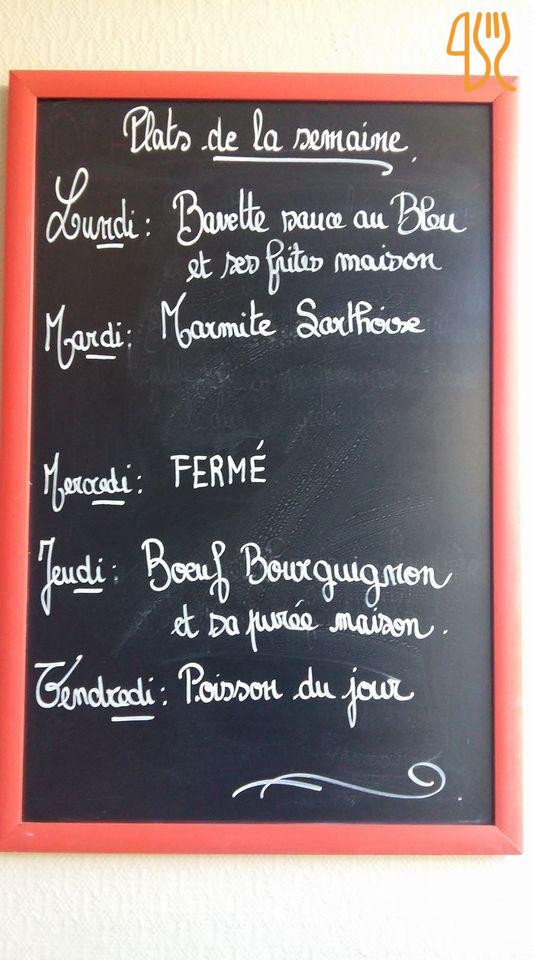 Plats de la semaine.
Lundi : Bavette sauce au Bleu
et ses frites maison
Mardi : Marmite Sarthoise
Mercredi : FERMÉ
Jeudi : Boeuf Bourguignon
et sa purée maison.
Vendredi : Poisson du jour